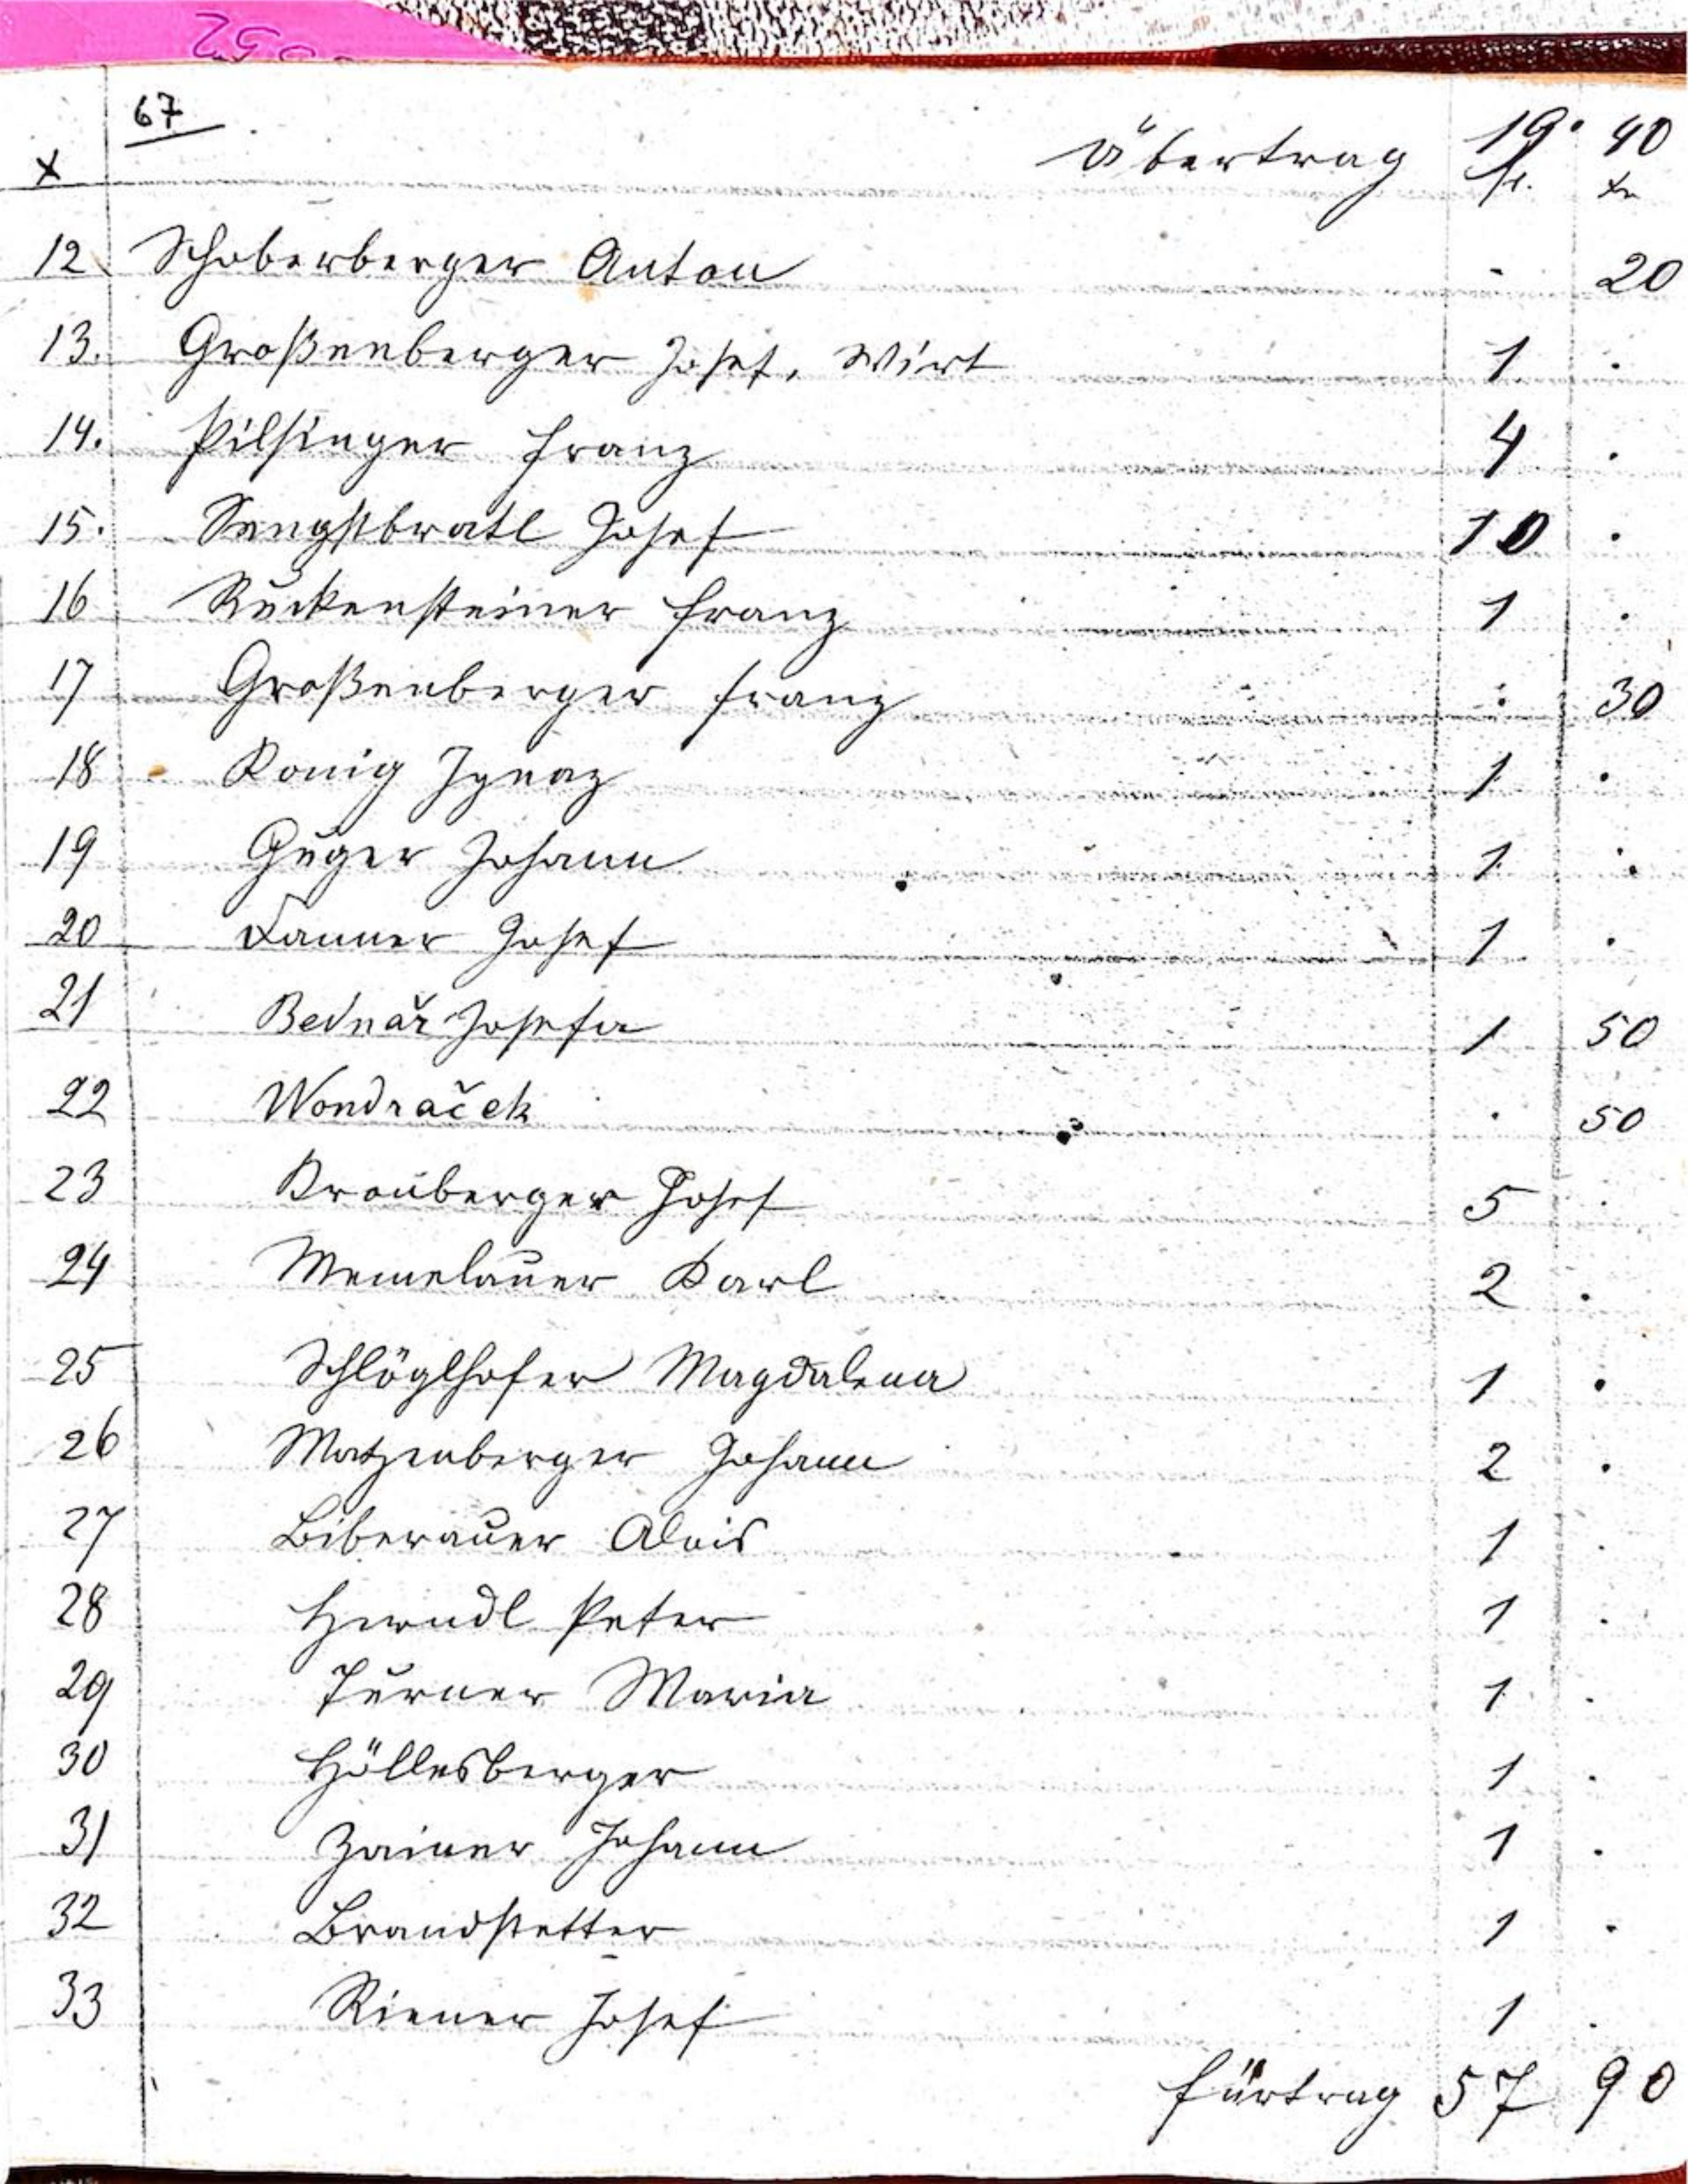 67
Übertrag 19. 40
x fl. xr
12. Schoberberger Anton . 20
13. Großenberger Josef, Wirt 1 .
14. Pilsinger Franz 4 .
15. Sengstbratl Josef 10 .
16 Ruckensteiner Franz 1 .
17 Großenberger Franz . 30
18 König Ignaz 1 .
19 Guger Johann 1 .
20 Danner Josef 1 .
21 Bednař Josefa 1 50
22 Wondraček . 50
23 Krauberger Josef 5 .
24 Memelauer Karl 2 .
25 Schlöglhofer Magdalena 1 .
26 Matzenberger Johann 2 .
27 Biberauer Alois 1 .
28 Herndl Peter 1 .
29 Turner Maria 1 .
30 Höllesberger 1 .
31 Zainer Johann 1 .
32 Brandstetter 1 .
33 Riener Josef 1 .
Fürtrag 57 90